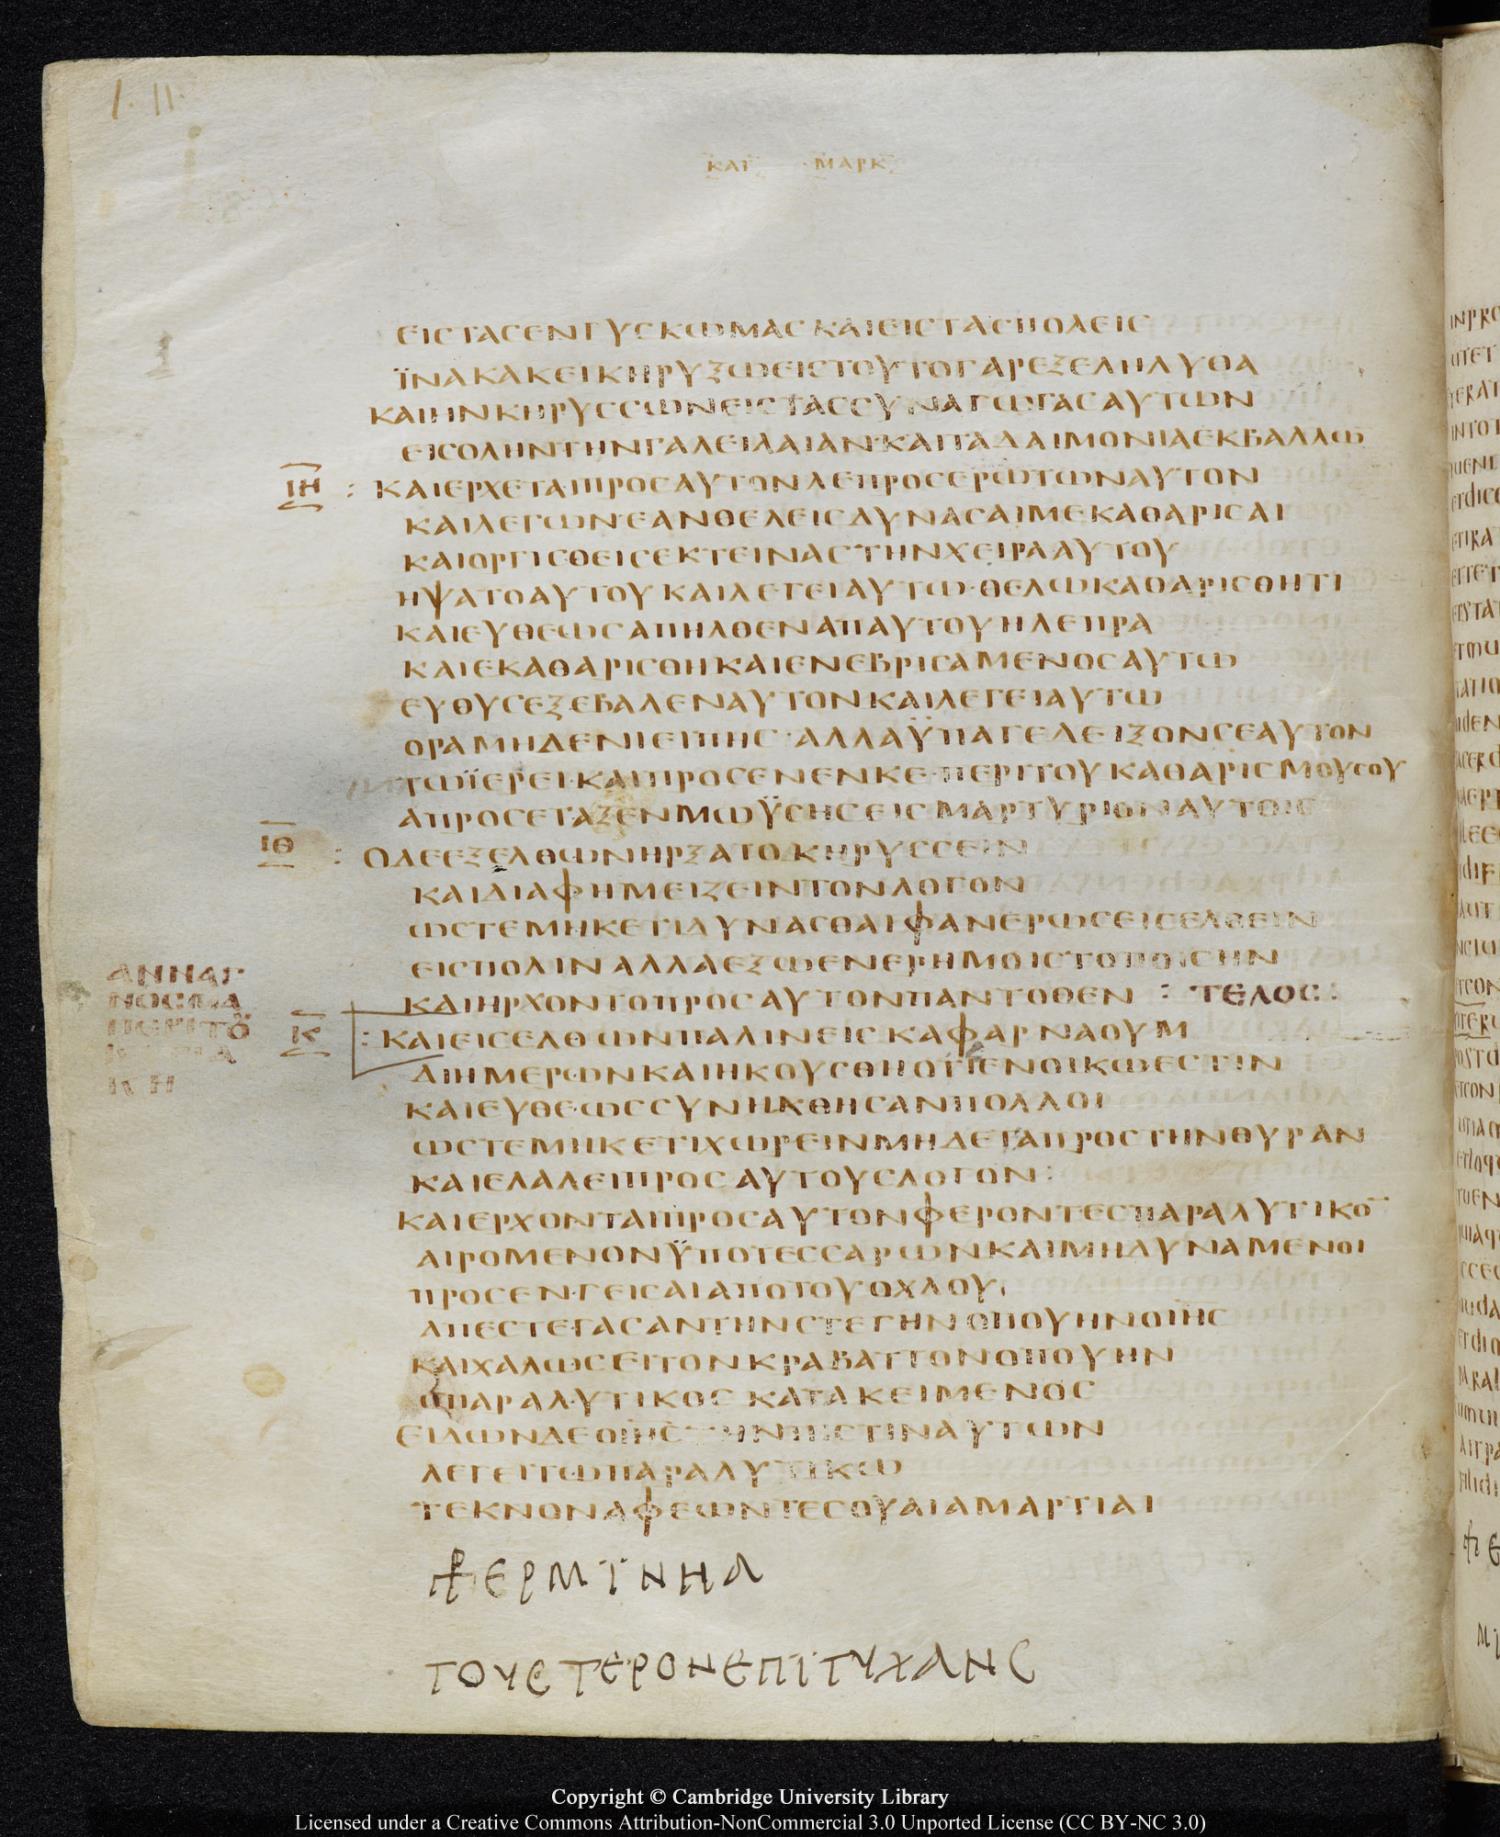 ΚΑΤ ΜΑΡΚ
ΕΙCΤΑCΕΝΓΥCΚΩΜΑCΚΑΙΕΙCΤΑCΠΟΛΕΙC
ΪΝΑΚΑΚΕΙΚΗΡΥΞΩΕΙCΤΟΥΤΟΓΑΡΕΞΕΛΗΛΥΘΑ
ΚΑΙΗΝΚΗΡΥCCΩΝΕΙCΤΑCCΥΝΑΓΩΓΑCΑΥΤΩΝ
ΕΙCΟΛΗΝΤΗΝΓΑΛΕΙΛΑΙΑΝ·ΚΑΙΤΑΔΑΙΜΟΝΙΑΕΚΒΑΛΛΩ
ΙΗ : ΚΑΙΕΡΧΕΤΑΙΠΡΟCΑΥΤΟΝΛΕΠΡΟCΕΡΩΤΩΝΑΥΤΟΝ
ΚΑΙΛΕΓΩΝ·ΕΑΝΘΕΛΕΙCΔΥΝΑCΑΙΜΕΚΑΘΑΡΙCΑΙ
ΚΑΙΟΡΓΙCΘΕΙCΕΚΤΕΙΝΑCΤΗΝΧΕΙΡΑΑΥΤΟΥ
ΗΨΑΤΟΑΥΤΟΥΚΑΙΛΕΓΕΙΑΥΤΩ·ΘΕΛΩΚΑΘΑΡΙCΘΗΤΙ
ΚΑΙΕΥΘΕΩCΑΠΗΛΘΕΝΑΠΑΥΤΟΥΗΛΕΠΡΑ
ΚΑΙΕΚΑΘΑΡΙCΘΗΚΑΙΕΝΕΒΡΙCΑΜΕΝΟCΑΥΤΩ
ΕΥΘΥCΕΞΕΒΑΛΕΝΑΥΤΟΝΚΑΙΛΕΓΕΙΑΥΤΩ
ΟΡΑΜΗΔΕΝΙΕΙΠΗC·ΑΛΛΑΫΠΑΓΕΔΕΙΞΟΝCΕΑΥΤΟΝ
ΤΩΪΕΡΕΙ·ΚΑΙΠΡΟCΕΝΕΝΚΕ·ΠΕΡΙΤΟΥΚΑΘΑΡΙCΜΟΥCΟΥ
ΑΠΡΟCΕΤΑΞΕΝΜΩΫCΗCΕΙCΜΑΡΤΥΡΙΟΝΑΥΤΟΙC
ΙΘ : ΟΔΕΕΞΕΛΘΩΝΗΡΞΑΤΟΚΗΡΥCCΕΙΝ
ΚΑΙΔΙΑΦΗΜΕΙΖΕΙΝΤΟΝΛΟΓΟΝ
ΩCΤΕΜΗΚΕΤΙΔΥΝΑCΘΑΙΦΑΝΕΡΩCΕΙCΕΛΘΕΙΝ
ΕΙCΠΟΛΙΝΑΛΛΑΕΞΩΕΝΕΡΗΜΟΙCΤΟΠΟΙCΗΝ
ΚΑΙΗΡΧΟΝΤΟΠΡΟCΑΥΤΟΝΠΑΝΤΟΘΕΝ : ΤΕΛΟC :
ΑΝΝΑΓ
ΝΟCΜΑ
ΠΕΡΙΤΟ
Κ : ΚΑΙΕΙCΕΛΘΩΝΠΑΛΙΝΕΙCΚΑΦΑΡΝΑΟΥΜ
ΔΙΗΜΕΡΩΝΚΑΙΗΚΟΥCΘΗΟΤΙΕΝΟΙΚΩΕCΤΙΝ
ΚΑΙΕΥΘΕΩCCΥΝΗΚΘΗCΑΝΠΟΛΛΟΙ
ΩCΤΕΜΗΚΕΤΙΧΩΡΕΙΝΜΗΔΕΤΑΠΡΟCΤΗΝΘΥΡΑΝ
ΚΑΙΕΛΑΛΕΙΠΡΟCΑΥΤΟΥCΛΟΓΟΝ :
ΚΑΙΕΡΧΟΝΤΑΙΠΡΟCΑΥΤΟΝΦΕΡΟΝΤΕCΠΑΡΑΛΥΤΙΚΟ̅
ΑΙΡΟΜΕΝΟΝΫΠΟΤΕCCΑΡΩΝΚΑΙΜΗΔΥΝΑΜΕΝΟΙ
ΠΡΟCΕΝΓΕΙCΑΙΑΠΟΤΟΥΟΧΛΟΥ
ΑΠΕCΤΕΓΑCΑΝΤΗΝCΤΕΓΗΝΟΠΟΥΗΝΟΙΗC
ΚΑΙΧΑΛΩCΕΙΤΟΝΚΡΑΒΑΤΤΟΝΟΠΟΥΗΝ
ΟΠΑΡΑΛΥΤΙΚΟCΚΑΤΑΚΕΙΜΕΝΟC
ΕΙΔΩΝΔΕΟΙΗCΤΗΝΠΙCΤΙΝΑΥΤΩΝ
ΛΕΓΕΙΤΩΠΑΡΑΛΥΤΙΚΩ
ΤΕΚΝΟΝΑΦΕΩΝΤΕCΟΥΑΙΑΜΑΡΤΙΑΙ
⳨ΕΡΜΙΝΗΑ
ΤΟΥCΤΕΡΟΝΕΠΙΤΥΧΑΝC
Copyright © Cambridge University Library
Licensed under a Creative Commons Attribution-NonCommercial 3.0 Unported License (CC BY-NC 3.0)